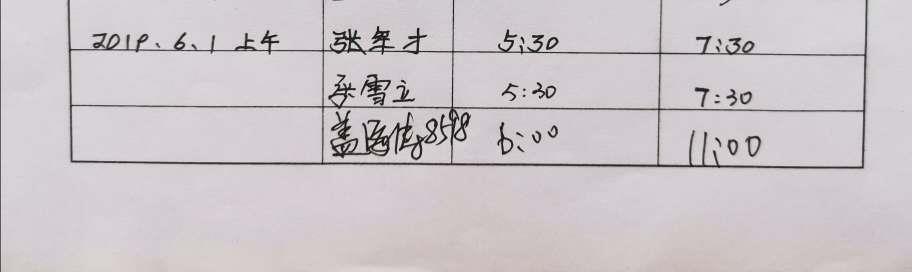 2019.6.1 上午 张年才 5:30 7:30
张雪立 5:30 7:30
盖 8598 6:00 11:00